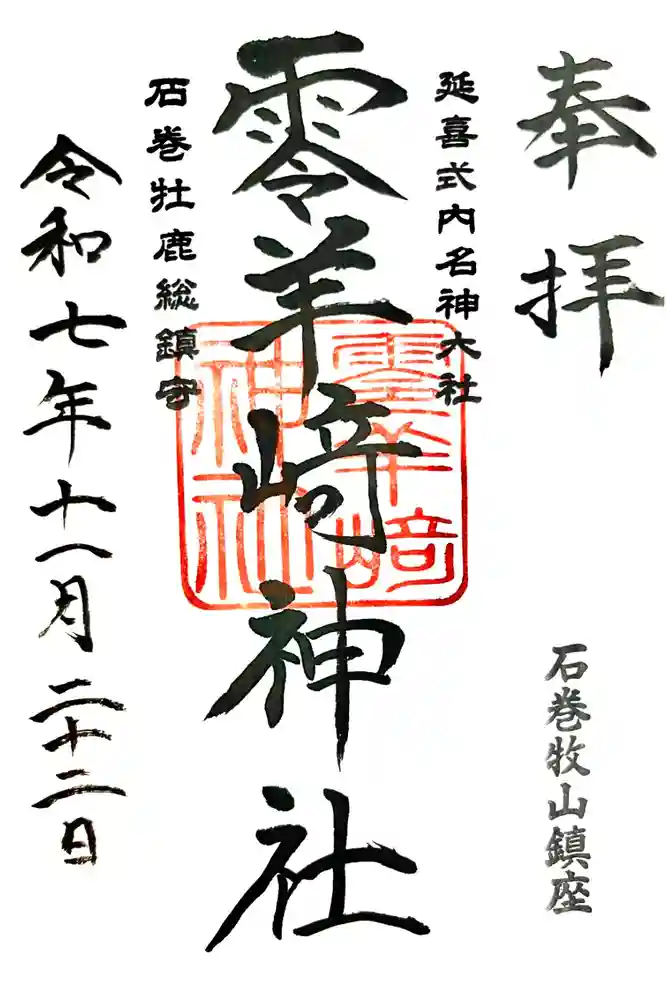 奉拝
石巻牧山鎮座
延喜式内名神大社
零羊崎神社
零羊崎神社
石巻牡鹿総鎮守
令和七年十一月二十二日